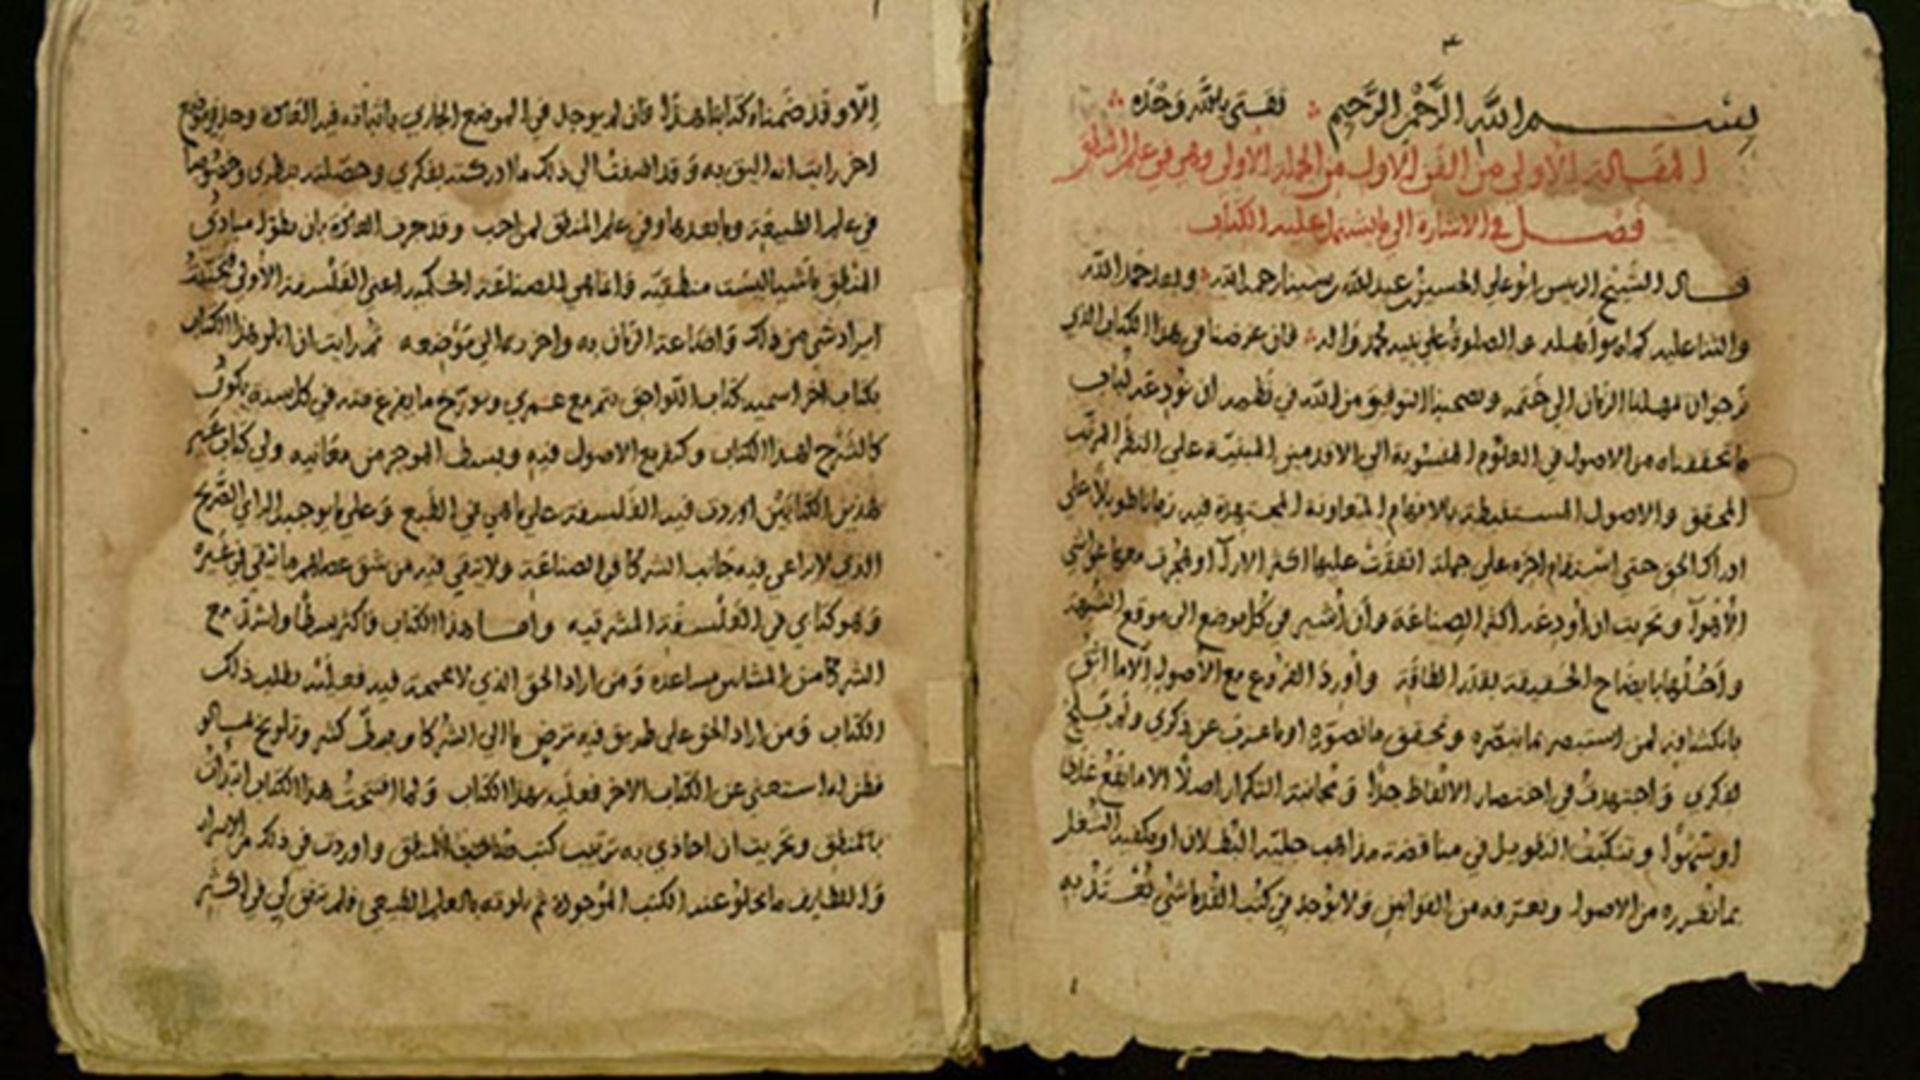 بسم الله الرحمن الرحيم ثقتي بالله وحده
المقالة الاولى من الفن الاول من الجملة الاولى وهي في علم المنطق
فصل في الاشارة الى ما يشتمل عليه الكتاب
قال الشيخ الريس ابو على الحسين بن عبد الله بن سينا رحمه الله وبعد حمد الله
والثناء عليه كما هو اهله والصلوة على نبيه محمد واله فان غرضنا في هذا الكتاب الذي
نرجو ان يمهلنا الزمان الى ختمه ويصحبنا التوفيق من الله في نظمه ان نودعه لباب
ما تحققناه من الاصول في العلوم المنسوبة الى الاقدمين المبنية على النظر المرتب
المحقق والاصول المستنبطة بالافهام المتعاونة المجتهدة فيه زمانا طويلا على
ادراك الحق حتى استقام اخره على جملة اتفقت عليها اكثر الارآ وهجرت معها غواشي
الاهوآ وتحريت ان اودعه اكثر الصناعة وان اشير في كل موضع الى موقع الشبهة
واحلها بايضاح الحقيقة بقدر الطاقة واورد الفروع مع الاصول الا ما اثق
بانكشافه لمن استبصر بما نبصره وتحقق ما نصوره او ما عزب عن ذكري ولم يلح
لفكري واجتهدت في اختصار الالفاظ جدا ومجانبة التكرار اصلا الا ما يقع غلطا
او سهوا وتنكبت التطويل في مناقضة مذاهب جلية البطلان او مكفية الشغل
بما نقرره من الاصول ونعرفه من القوانين ولا يوجد في كتب القدما شي يعتد به
الا وقد ضمناه كتابنا هذا فان لم يوجد في الموضع الجاري باثباته فيه العادة وجد في موضع
اخر رايت انه اليق به وقد اضفت الى ذلك ما ادركته بفكري وحصلته بنظري وخصوصا
في علم الطبيعة وما بعدها وفي علم المنطق لمن احب وقد جرت العادة بان تطول مبادي
المنطق باشيا ليست منطقية وانما هي للصناعة الحكمية اعني الفلسفة الاولى فتجنبت
ايراد شي من ذلك واضاعة الزمان به واخرته الى موضعه ثم رايت ان اتلو هذا الكتاب
بكتاب اخر اسميه كتاب اللواحق يتم مع عمري ويورخ بما يفرغ منه في كل سنة يكون
كالشرح لهذا الكتاب وكتفريع الاصول فيه وبسط الموجز من معانيه ولي كتاب غير
هذين الكتابين اوردت فيه الفلسفة على ما هي في الطبع وعلى ما يوجبه الراي الصريح
الذي لا يراعي فيه جانب الشركا في الصناعة ولا يتقي فيه من شق عصاهم ما يتقى في غيره
وهو كتابي في الفلسفة المشرقيه واما هذا الكتاب فاكثر بسطا واشد مع
الشركا من المشائين مساعدة ومن اراد الحق الذي لا مجمجة فيه فعليه بطلب ذلك
الكتاب ومن اراد الحق على طريق فيه ترض ما الى الشركا وبسط كثير وتلويح بما لو
فطن له استغنى عن الكتاب الاخر فعليه بهذا الكتاب ولما افتتحت هذا الكتاب ابتدأت
بالمنطق وتحريت ان احاذي به ترتيب كتب صاحب المنطق واوردت في ذلك من الاسرار
واللطايف ما تخلو عنه الكتب الموجودة ثم تلوته بالعلم الطبيعي فلم يتفق لي في اكثر